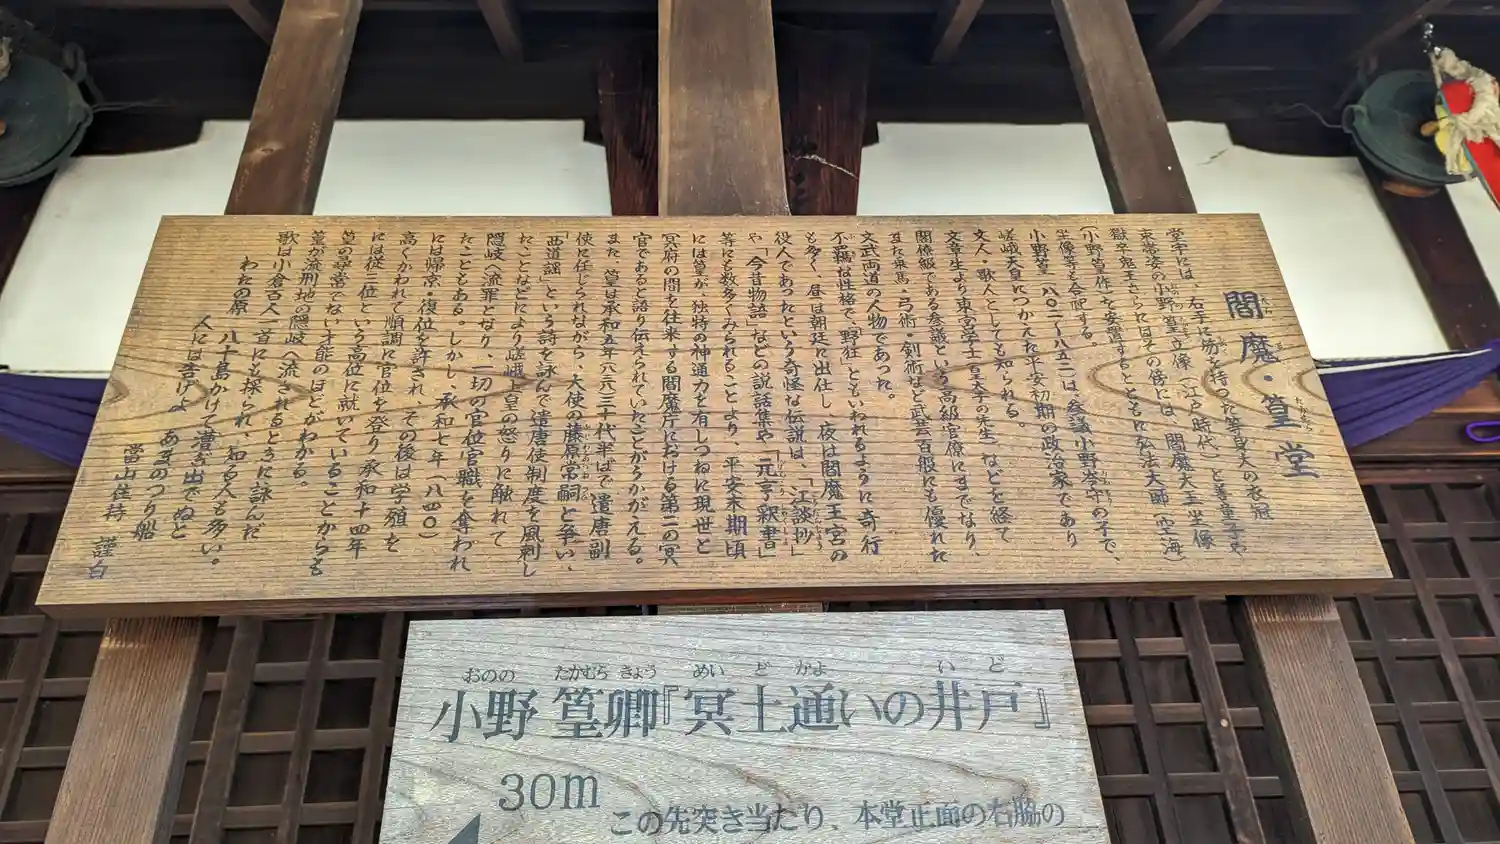 閻魔・篁堂
堂宇には、右手に笏を持った等身大の衣冠
束帯姿の小野篁立像(江戸時代)と善童子や
獄卒鬼王さらにはその傍には、閻魔大王坐像
(小野篁作)を安置するとともに弘法大師(空海)
坐像等を合祀する。
小野篁(八〇二~八五二)は参議小野岑守の子で、
嵯峨天皇につかえた平安初期の政治家であり
文人・歌人としても知られる。
文章生より東宮学士(皇太子の先生)などを経て
閣僚級である参議という高級官僚にまでなり、
また乗馬・弓術・剣術など武芸百般にも優れた
文武両道の人物であった。
不羈な性格で「野狂」ともいわれるように奇行
も多く、昼は朝廷に出仕し、夜は閻魔王宮の
役人であったという奇怪な伝説は、「江談抄」
や「今昔物語」などの説話集や「元亨釈書」
等にも数多くみられることより、平安末期頃
には篁が、独特の神通力を有しつねに現世と
冥府の間を往来する閻魔庁における第二の冥
官であると語り伝えられていたことがうかがえる。
また、篁は承和五年(八三八)三十代半ばで遣唐副
使に任じられながら、大使の藤原常嗣と争い、
「西道謡」という詩を詠んで遣唐使制度を風刺し
たことなどにより嵯峨上皇の怒りに触れて
隠岐へ流罪となり、一切の官位官職を奪われ
たこともある。しかし、承和七年(八四〇)
には帰京・復位を許され、その後は学殖を
高くかわれて順調に官位を登り承和十四年
には従三位という高位に就いていることからも
篁の尋常でない才能のほどがわかる。
篁が流刑地の隠岐へ流されるときに詠んだ
歌は小倉百人一首にも採られ、知る人も多い。
わたの原 八十島かけて漕ぎ出でぬと
人には告げよ あまのつり船
当山住持 謹白
おのの たかむら きょう めい ど かよ い ど
小野 篁卿『冥土通いの井戸』
30m
この先突き当たり、本堂正面の右脇の